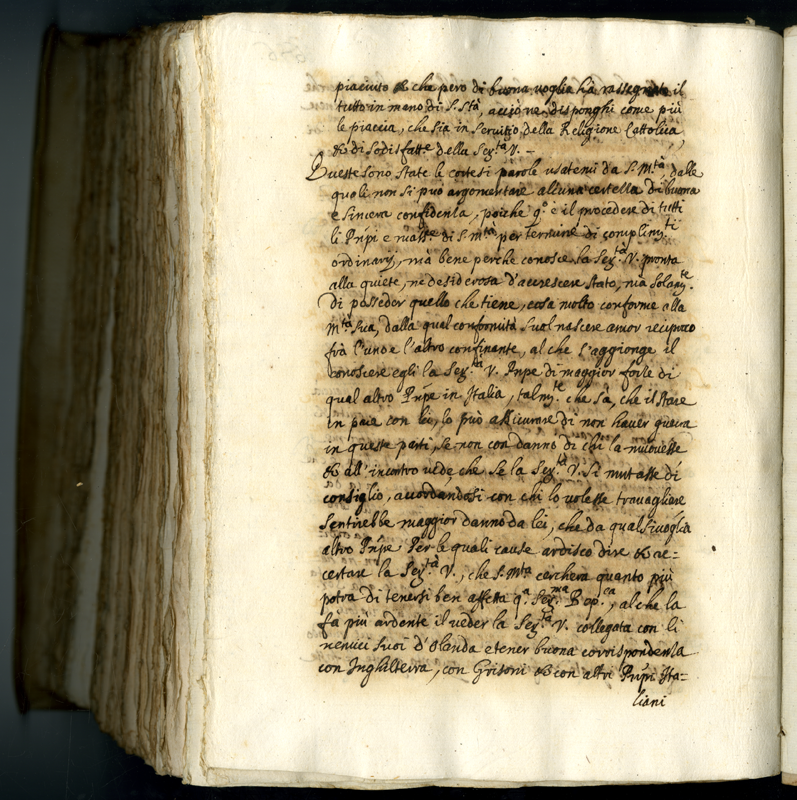 piaciuto & che però di buona voglia hà rassegnato il
tutto in mano di S. Stà, acciò ne disponghi come più
le piaccia, che sia in servitio della Religione Cattolica,
& di sodisfatt.e della Ser.tà V. –
Queste sono state le cortesi parole usatemi da S. M.tà, dalle
quali non si può argomentare alcuna certezza di buona
e sincera confidenza, poiche q.o è il procedere di tutti
li Prīpi e mass.e di S. M.tà per termine di complim.ti
ordinarij, mà bene perche conosce la Ser.tà V. pronta
alla quiete, ne desiderosa d'accrescere stato, mà solam.te
di posseder quello che tiene, cosa molto conforme alla
M.tà sua, dalla qual conformità suol nascere amor reciproco
frà l'uno e l'altro confinante, al che s'aggionge il
conoscere egli la Ser.tà V. Prīpe di maggior forze di
qual altro Prīpe in Italia, talm.te che sà, che il stare
in pace con lei, lo può assicurare di non haver guerra
in queste parti, se non con danno di chi la movesse
& all'incontro vede che se la Ser.tà V. si mutasse di
consiglio, accordandosi con chi lo volesse travagliare
sentirebbe maggior danno da lei, che da qualsivoglia
altro Prīpe. Per le quali cause ardisco dire & ac=
certare la Ser.tà V., che S. M.tà cercherà quanto più
potrà di tenersi ben affetta q.a Ser.ma Rep.ca, al che la
fà più ardente il veder la Ser.tà V. collegata con li
nemici suoi d'Olanda e tener buona corrispondenza
con Inghilterra, con Grisoni & con altri Prīpi Ita=
liani